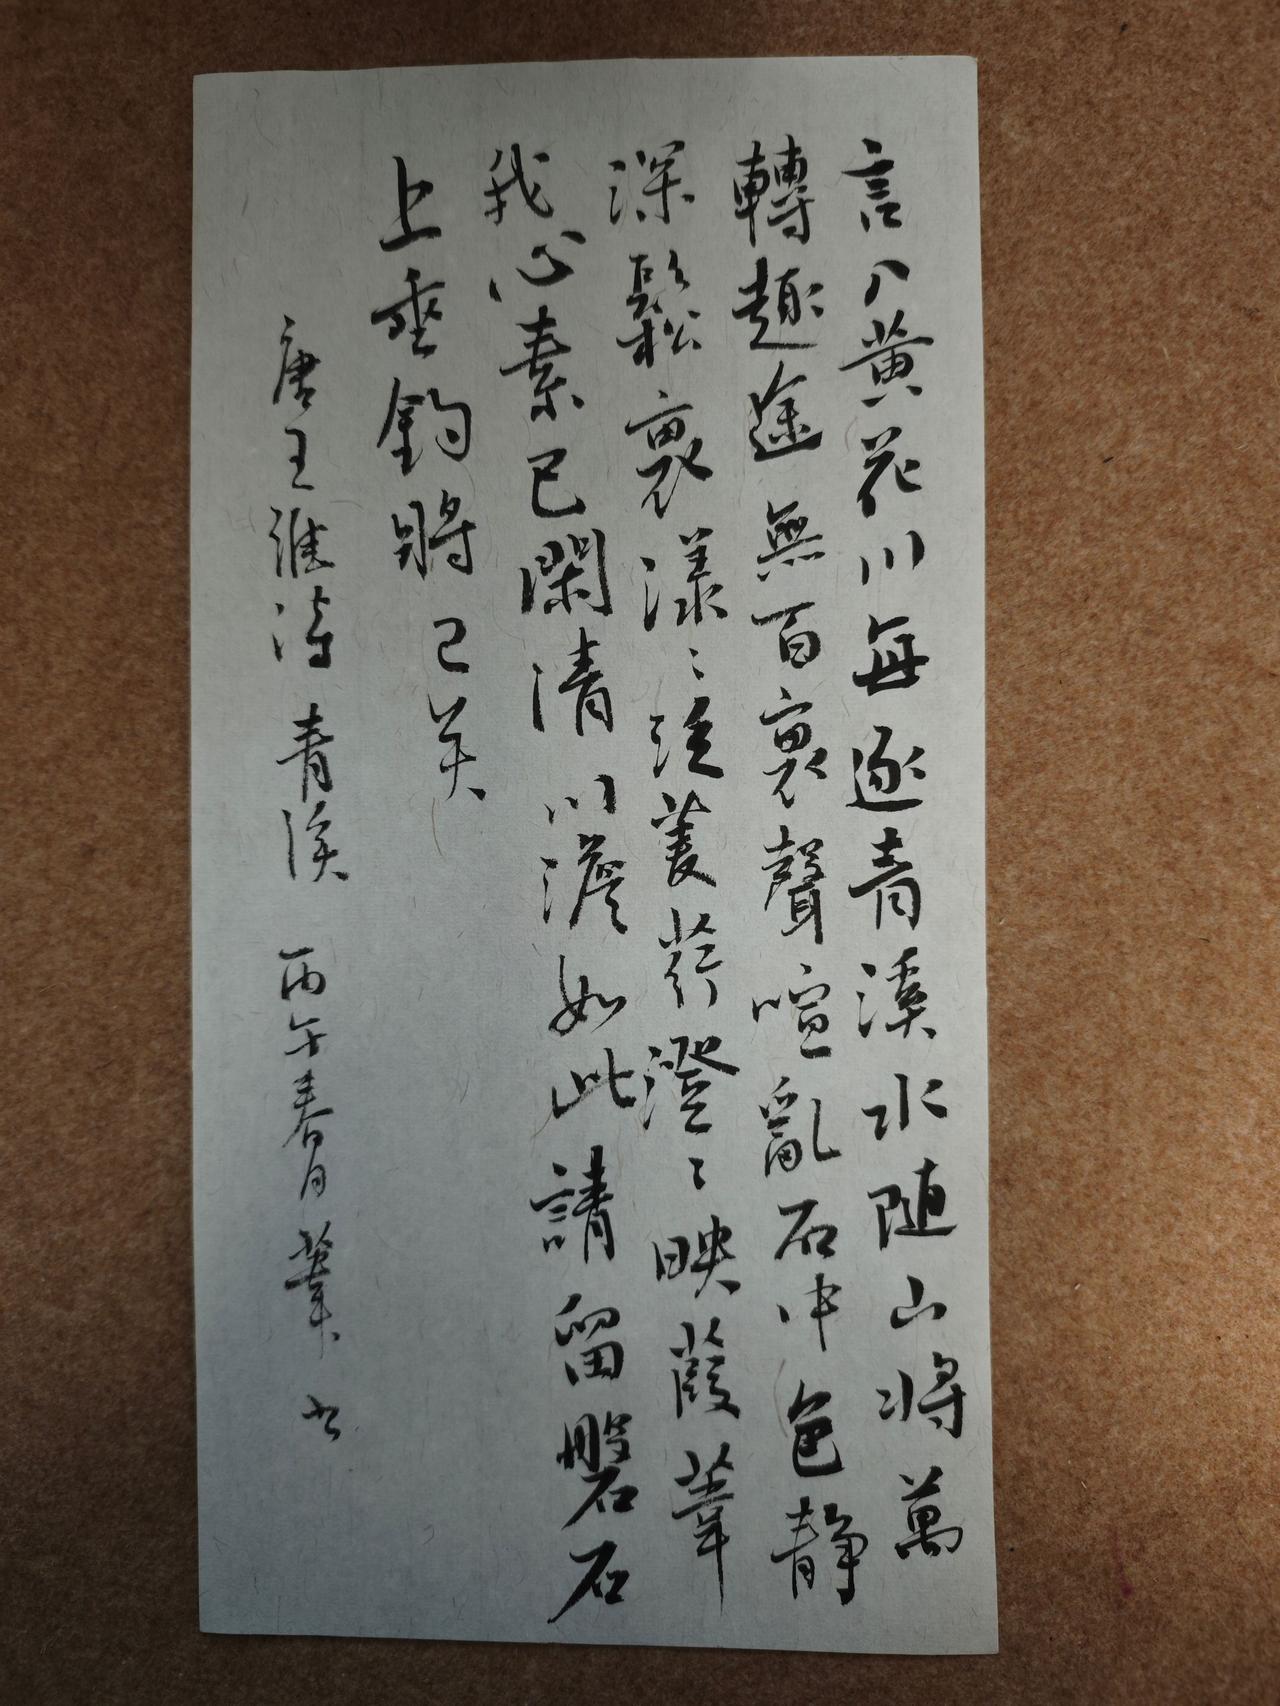 言入黄花川每逐青溪水随山将萬
轉趣途無百裏聲喧亂石中色静
深鬆裏漾〻泛菱荇澄〻映葭葦
我心素已閑清川澹如此請留盤石
上垂釣將已矣
唐王維詩 青溪 丙午春月 葦 书